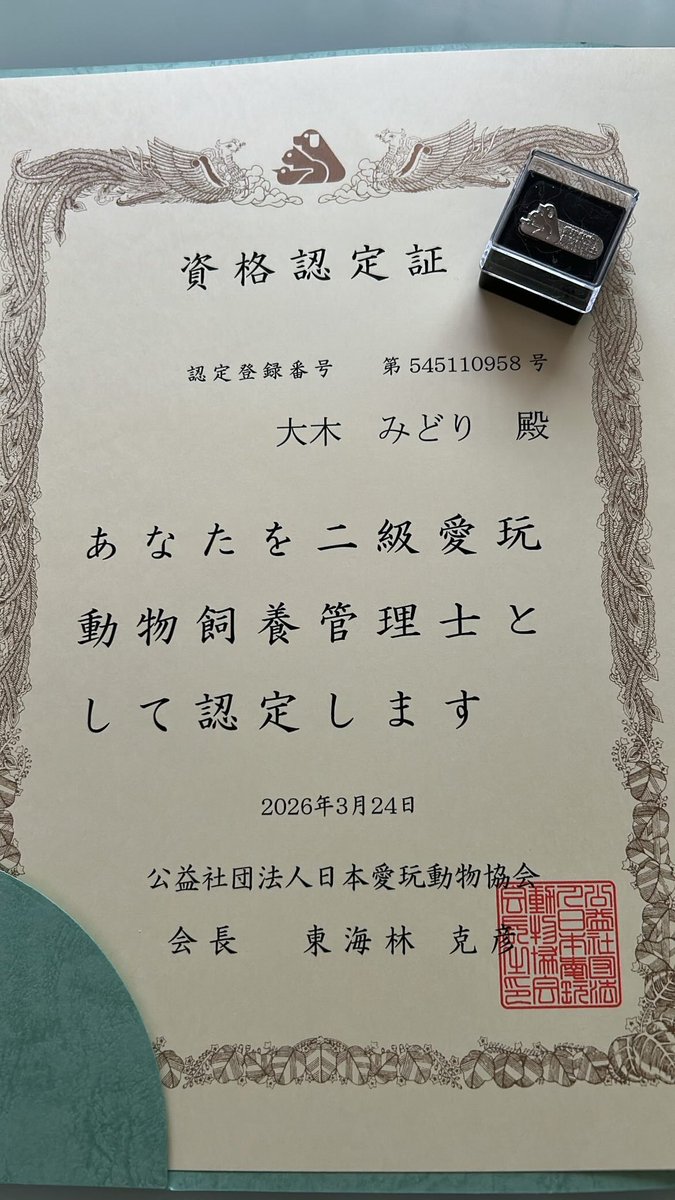 資格認定証
認定登録番号 第545110958号
大木 みどり 殿
あなたを二級愛玩
動物飼養管理士と
して認定します
2026年3月24日
公益社団法人日本愛玩動物協会
会長 東海林 克彦